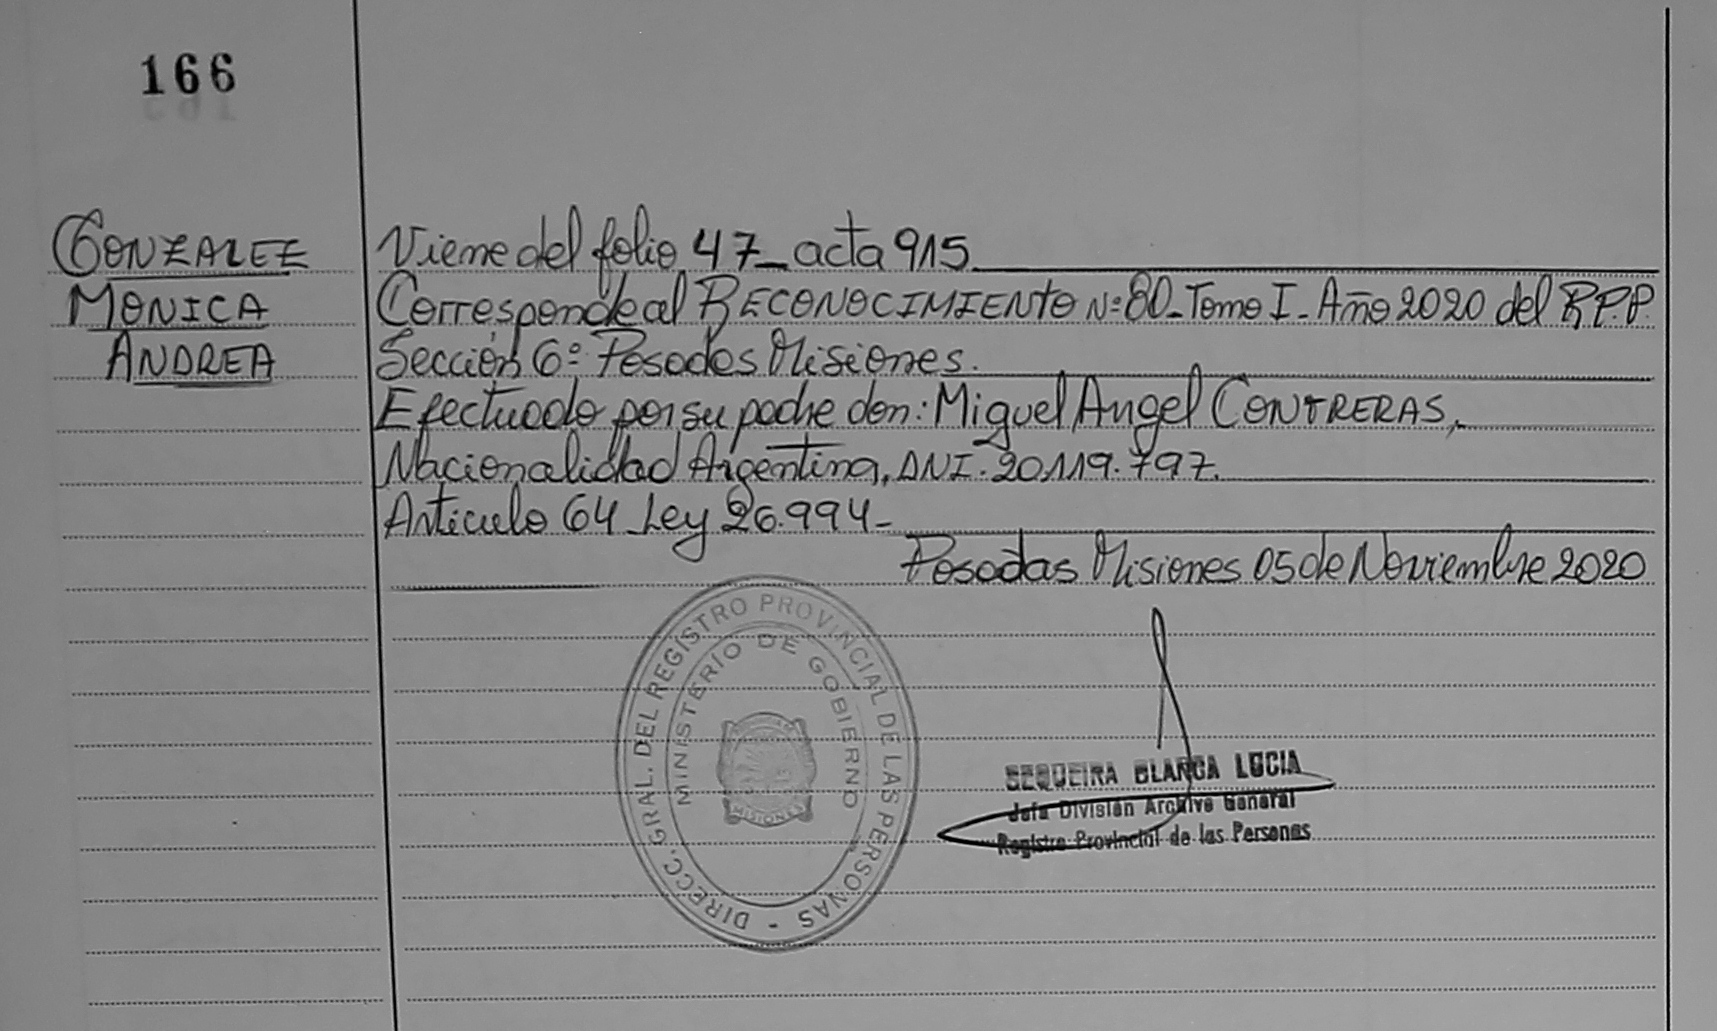 166
GONZALEZ
MONICA
ANDREA
Viene del folio 47_ acta 915
Corresponde al RECONOCIMIENTO Nº 80_ Tomo I_ Año 2020 del R.P.P.
Sección 6º Posadas Misiones.
Efectuado por su padre don: Miguel Angel CONTRERAS,
Nacionalidad Argentina, DNI. 20.119.797.
Articulo 64 Ley 26.994_
Posadas Misiones 05 de Noviembre 2020
DIRECC. GRAL. DEL REGISTRO PROVINCIAL DE LAS PERSONAS -
MINISTERIO DE GOBIERNO
MISIONES
SEQUEIRA BLANCA LUCIA
Jefa División Archivo General
Registro Provincial de las Personas